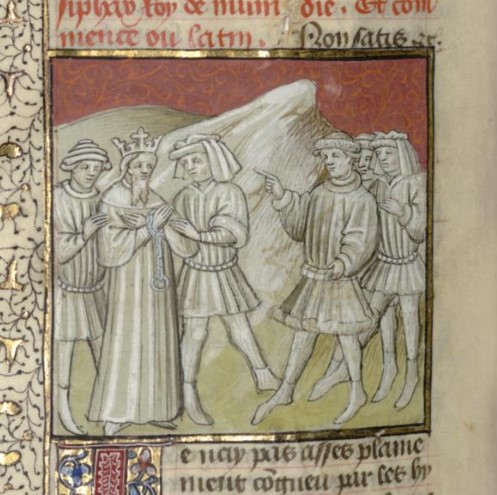 siphax Roy de numi die. Et com
mence ou latin. Non satis &c.
Je nay pas asses plaine
ment cõgneu par les hy